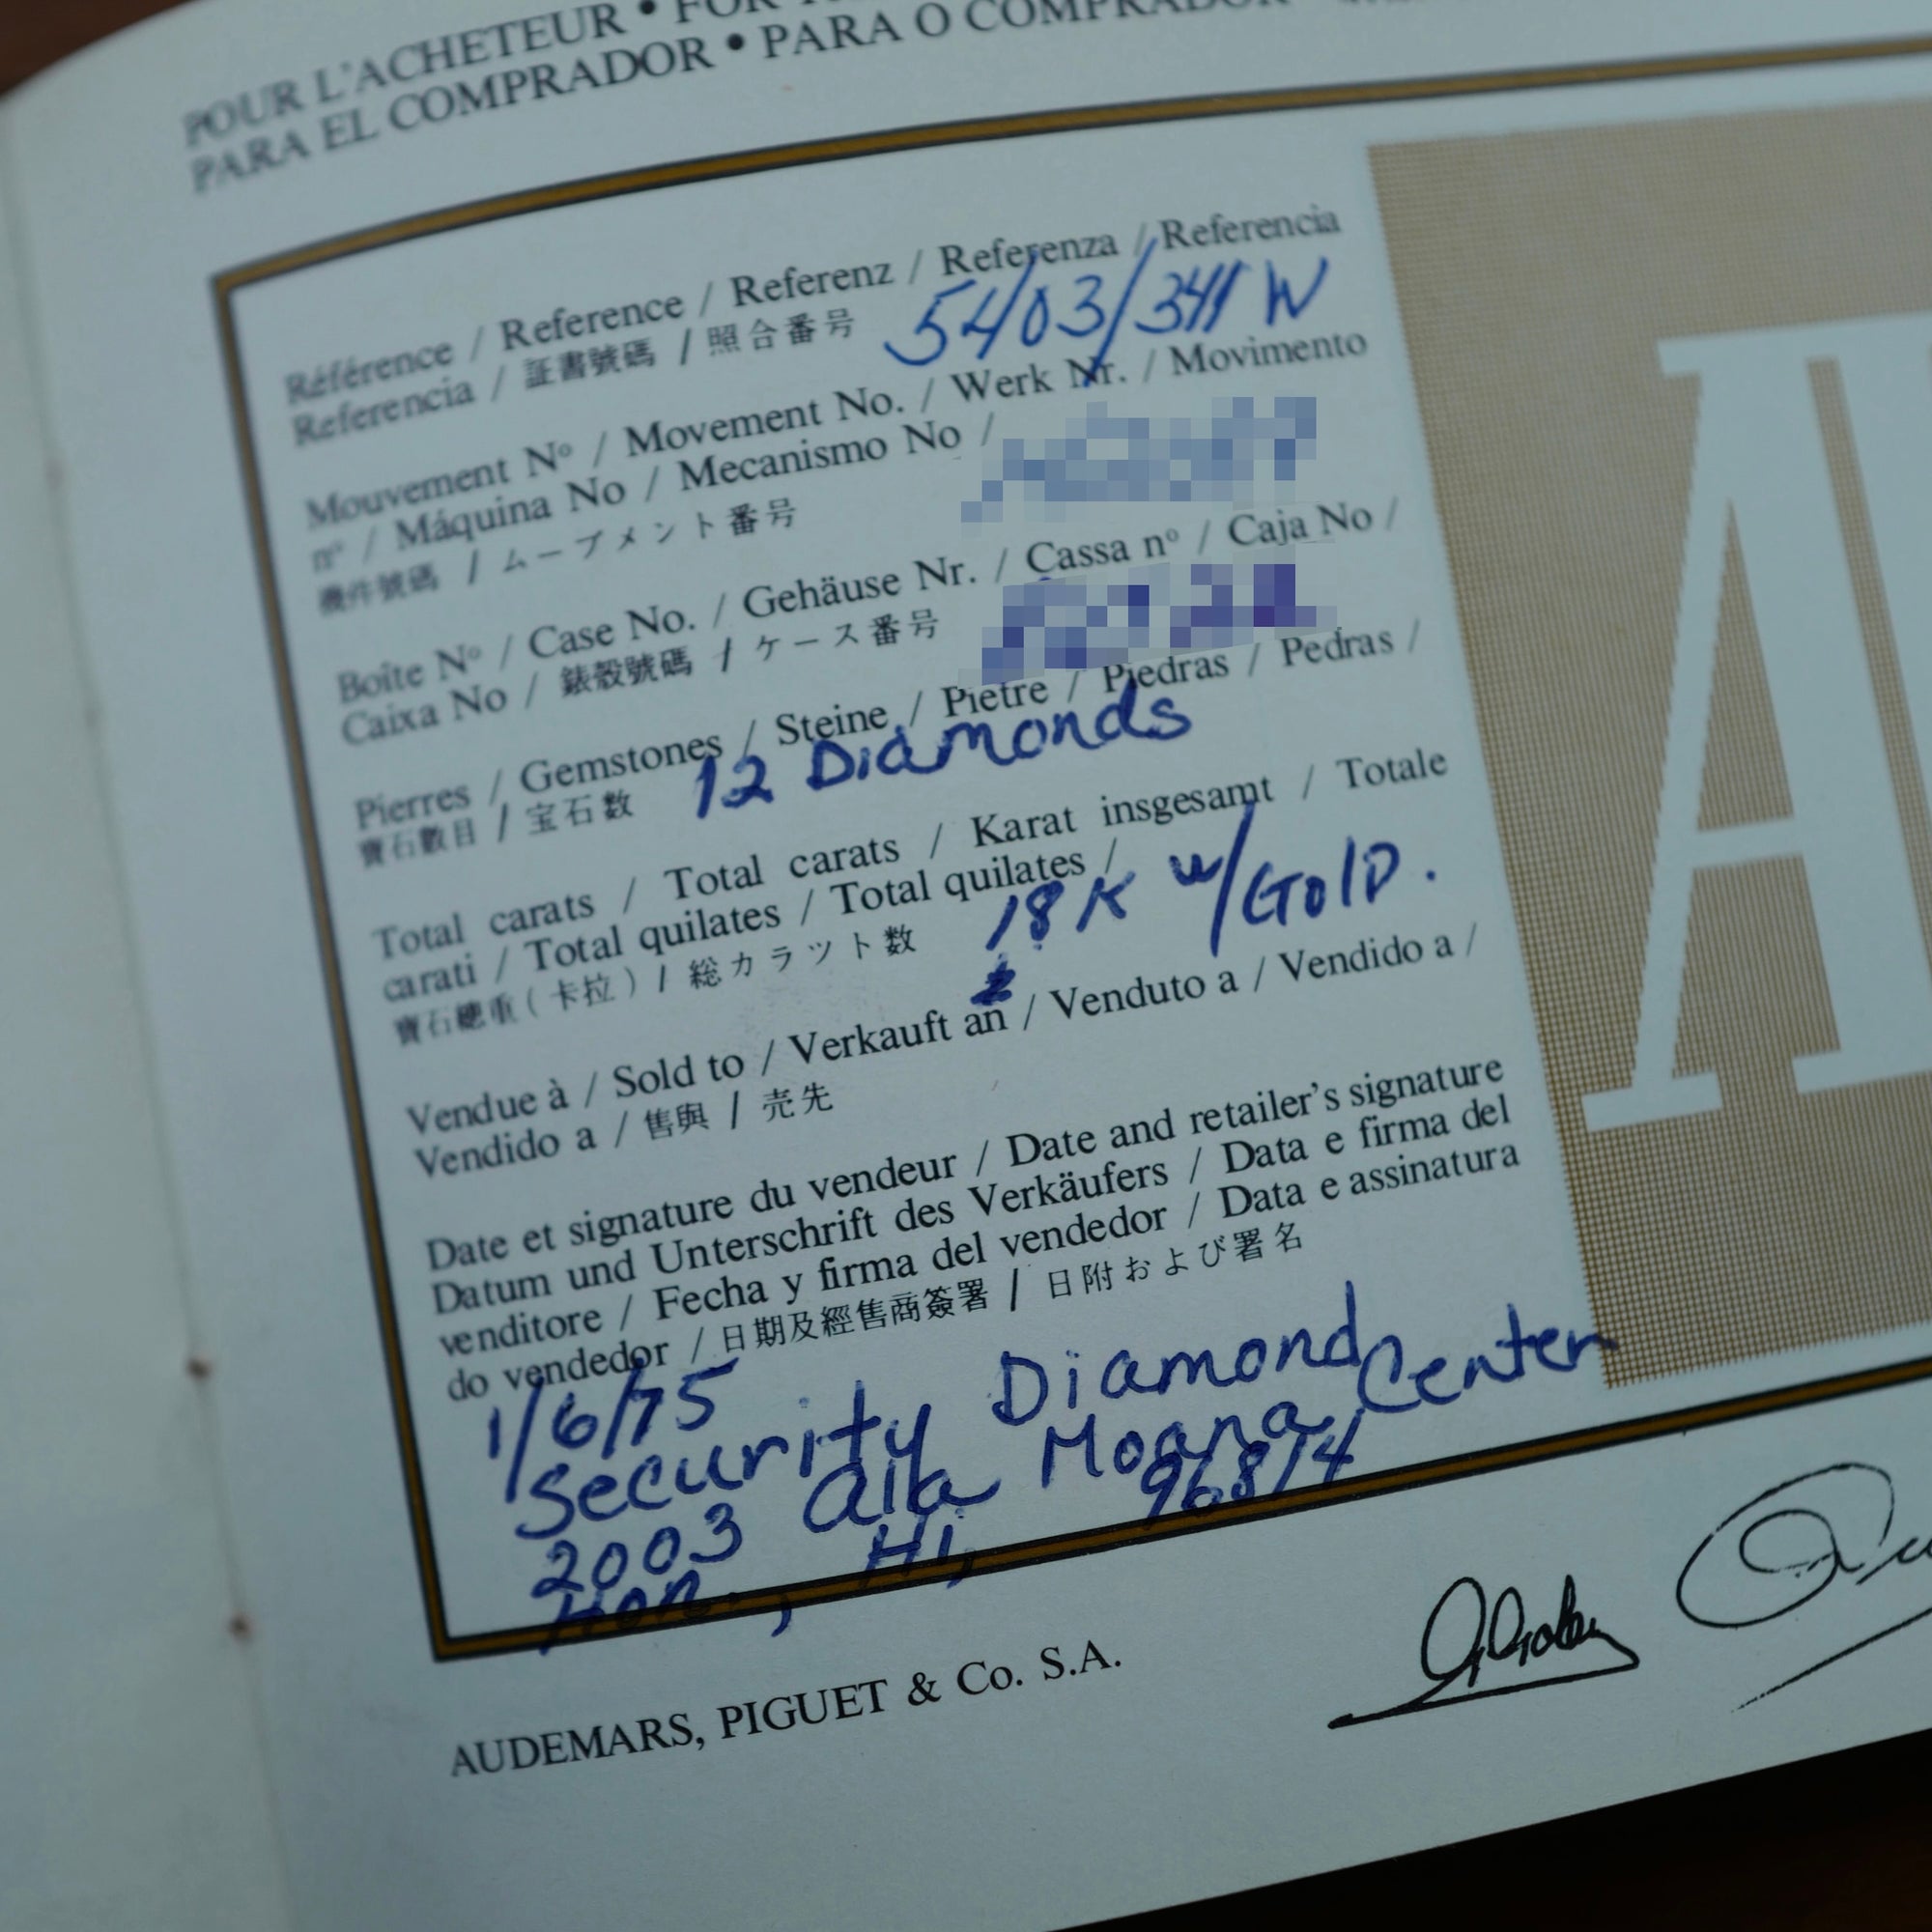 POUR L'ACHETEUR • FOR
PARA EL COMPRADOR • PARA O COMPRADOR
Référence / Reference / Referenz / Referenza / Referencia
Referencia / 証書號碼 / 照合番号 5403/344 W
Mouvement Nº / Movement No. / Werk Nr. / Movimento
nº / Máquina No / Mecanismo No /
機件號碼 / ムーブメント番号
Boîte Nº / Case No. / Gehäuse Nr. / Cassa nº / Caja No /
Caixa No / 錶殼號碼 / ケース番号
Pierres / Gemstones / Steine / Pietre / Piedras / Pedras /
寶石數目 / 宝石数 12 Diamonds
Total carats / Total carats / Karat insgesamt / Totale
carati / Total quilates / Total quilates /
寶石總重(卡拉) / 総カラット数 18K W/GOlD.
Vendue à / Sold to / Verkauft an / Venduto a / Vendido a /
Vendido a / 售與 / 売先
Date et signature du vendeur / Date and retailer's signature
Datum und Unterschrift des Verkäufers / Data e firma del
venditore / Fecha y firma del vendedor / Data e assinatura
do vendedor / 日期及經售商簽署 / 日附および署名
1/6/75
Security Diamond
2003 Ala Moana Center
Hon., Hi, 96814
AUDEMARS, PIGUET & Co. S.A.
A